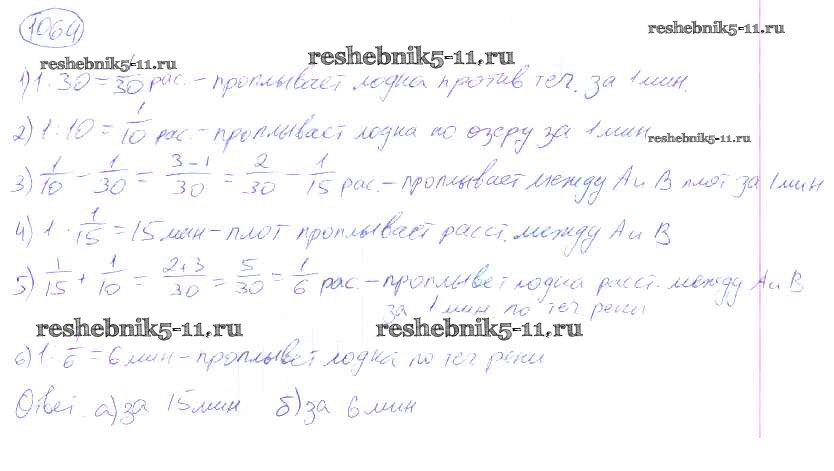 1064
reshebnik5-11.ru
reshebnik5-11.ru
reshebnik5-11.ru
1) 1 : 30 = 1/30 рас. – проплывает лодка против теч. за 1 мин.
2) 1 : 10 = 1/10 рас. – проплывает лодка по озеру за 1 мин
reshebnik5-11.ru
3) 1/10 - 1/30 = 3-1/30 = 2/30 - 1/15 рас. – проплывает между А и В плот за 1 мин
4) 1 · 1/15 = 15 мин – плот проплывает расст. между А и В
5) 1/15 + 1/10 = 2+3/30 = 5/30 = 1/6 рас. – проплывет лодка расст. между А и В
за 1 мин по теч реки
reshebnik5-11.ru
reshebnik5-11.ru
6) 1 · 1/6 = 6 мин – проплывет лодка по теч реки
Ответ. а) за 15 мин б) за 6 мин